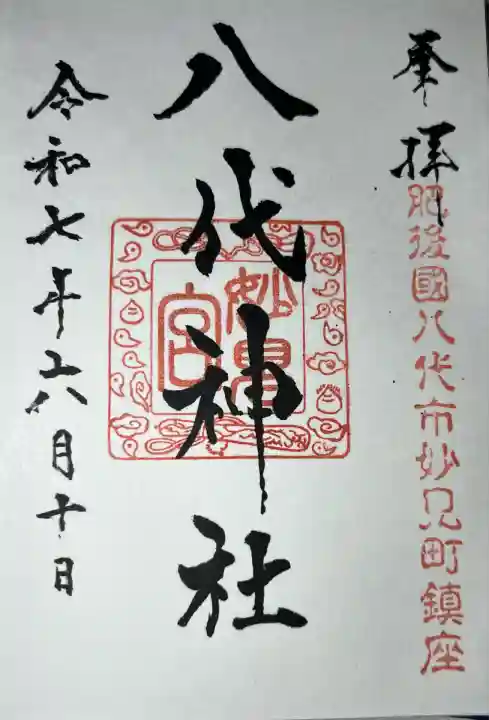 奉拝
肥後國八代市妙見町鎮座
八代神社
妙見宮
令和七年六月十日